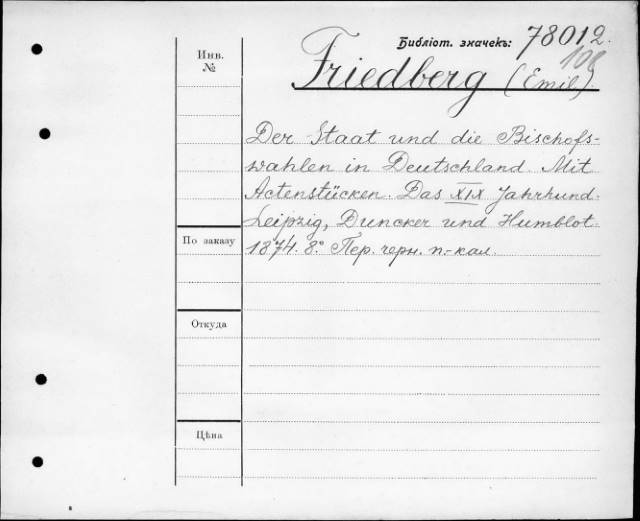 Библіот. значекъ: 78012.
108
Инв.
№
Friedberg (Emil).
Der Staat und die Bischofs-
wahlen in Deutschland. Mit
Actenstücken. Das XIX Jahrhund.
Leipzig, Duncker und Humblot.
1874. 8° Пер. черн. п.-кал.
По заказу
Откуда
Цѣна